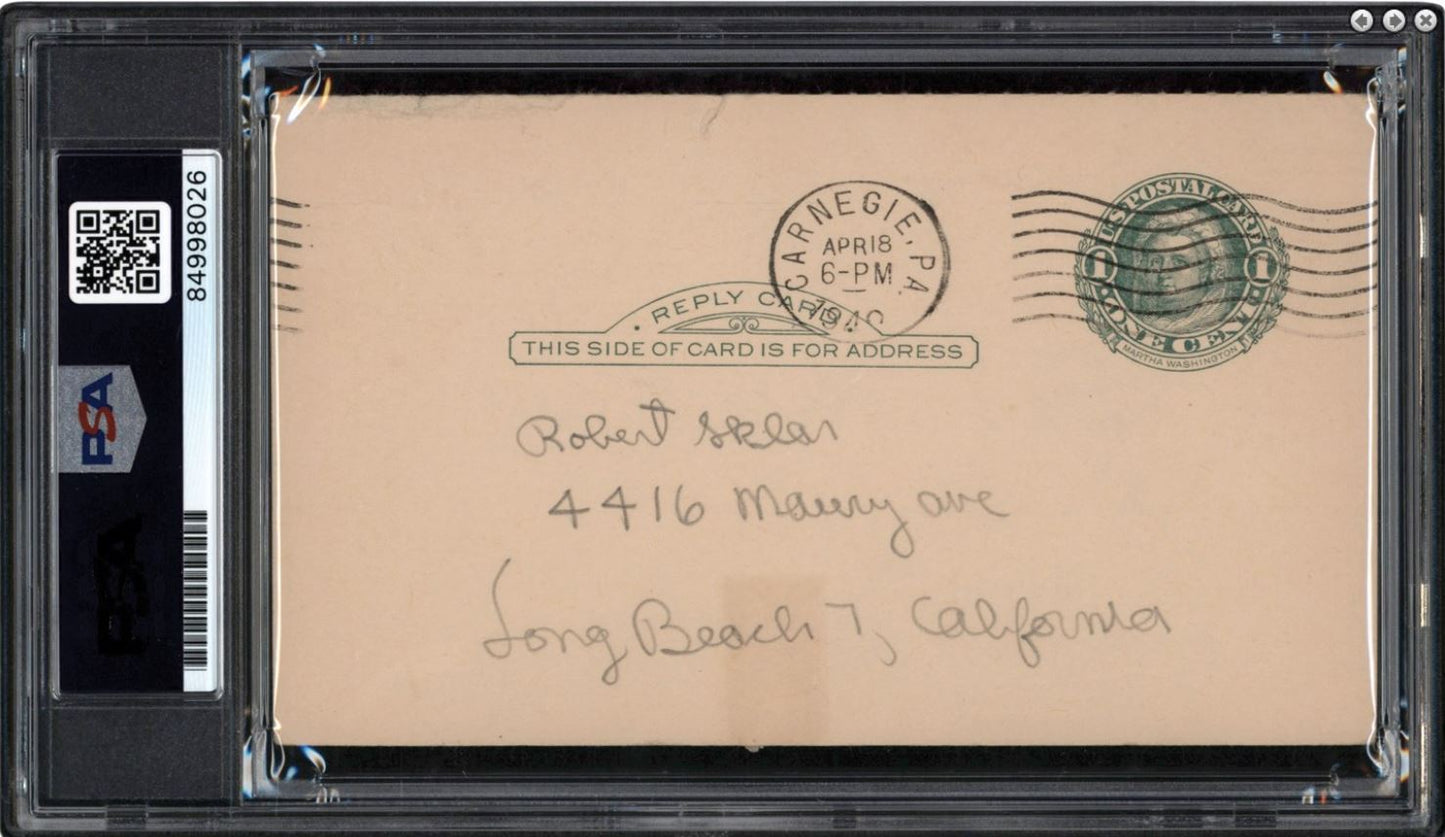 84998026
PSA
PSA
CARNEGIE, PA.
APR 18
6-PM
U.S. POSTAL CARD
1 1
ONE CENT
MARTHA WASHINGTON
REPLY CARD
THIS SIDE OF CARD IS FOR ADDRESS
Robert Sklar
4416 Maury ave
Long Beach 7, California